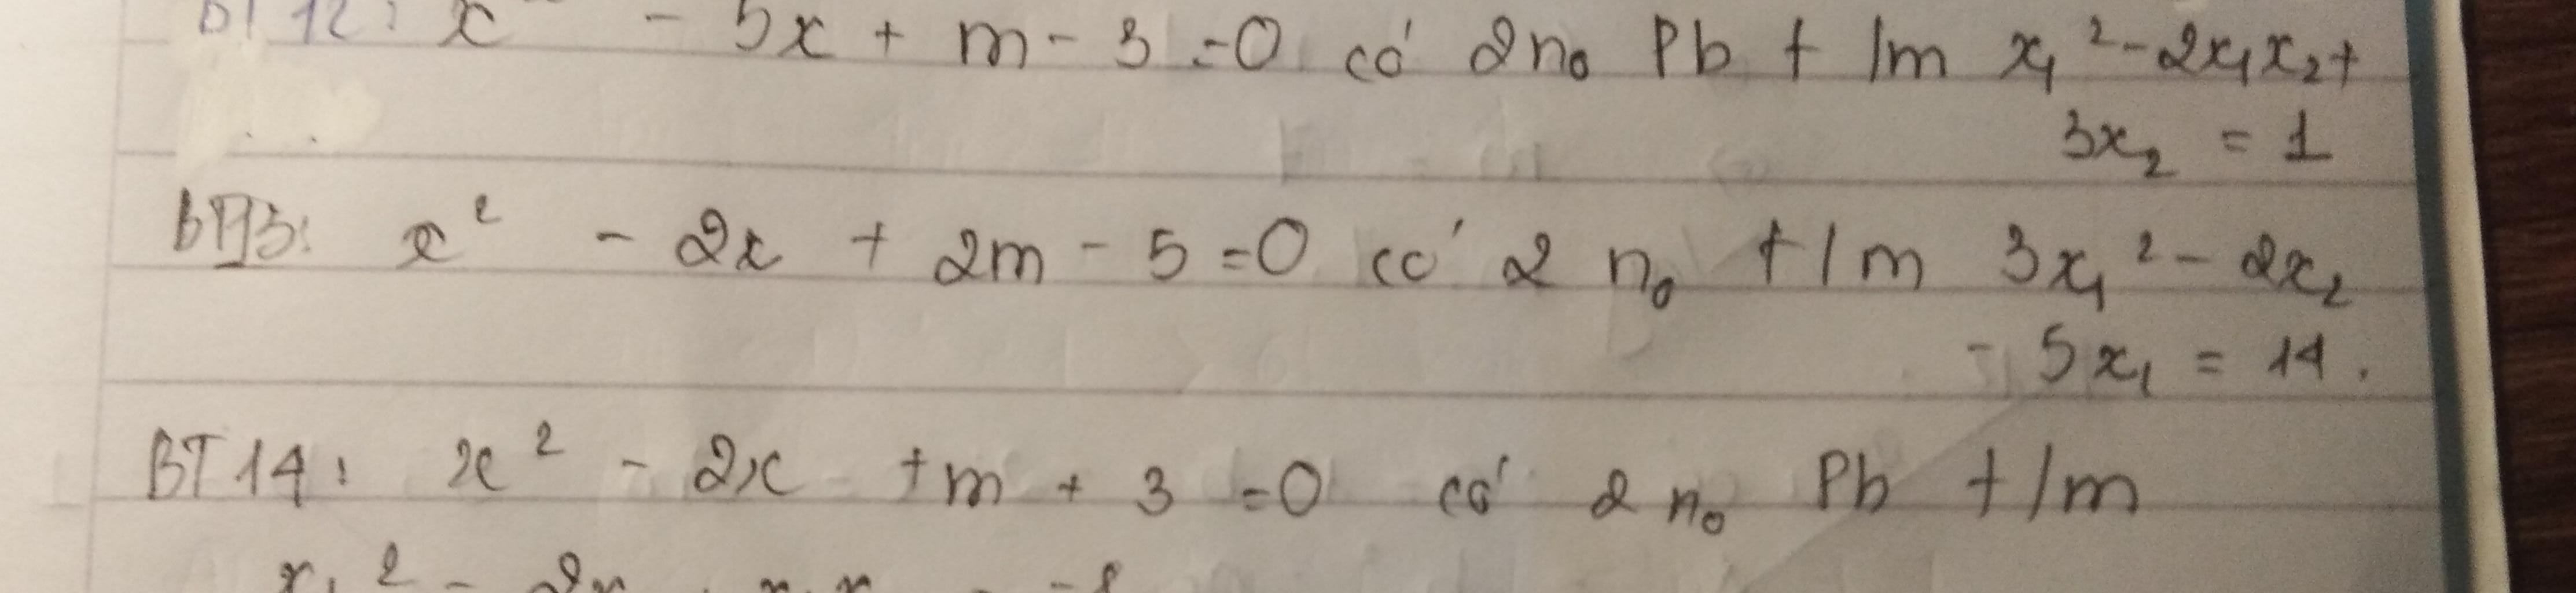 BT 12: x² - 5x + m - 3 = 0 có 2 n₀ Pb t/m x₁² - 2x₁x₂ +
3x₂ = 1
BT13: x² - 2x + 2m - 5 = 0 có 2 n₀ t/m 3x₁² - 2x₂
- 5x₁ = 14.
BT 14: x² - 2x + m + 3 = 0 có 2 n₀ Pb t/m